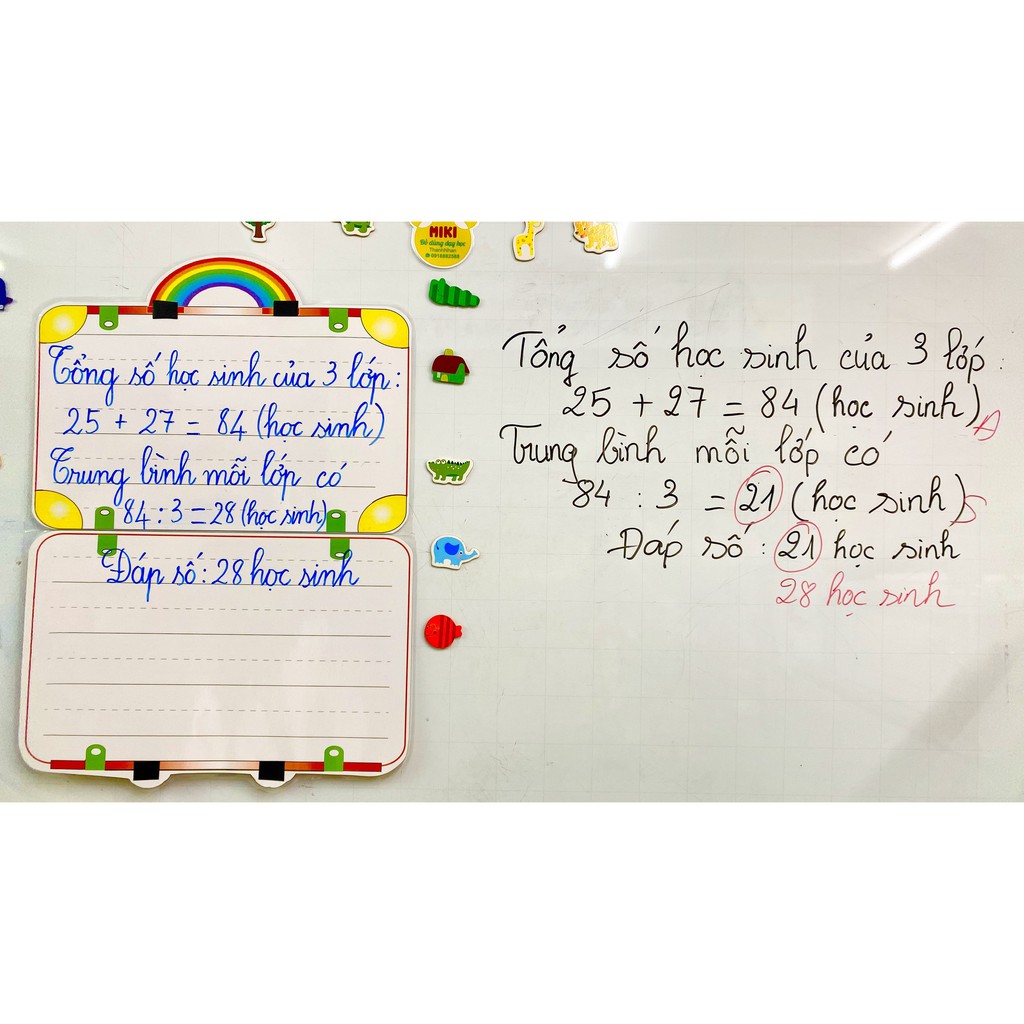 MIKI
Đồ dùng dạy học
ThanhNhan
Tổng số học sinh của 3 lớp:
25 + 27 = 84 (học sinh)
Trung bình mỗi lớp có
84 : 3 = 28 (học sinh)
Đáp số: 28 học sinh
Tổng số học sinh của 3 lớp:
25 + 27 = 84 (học sinh) Đ
Trung bình mỗi lớp có
84 : 3 = 21 (học sinh) S
Đáp số: 21 học sinh
28 học sinh